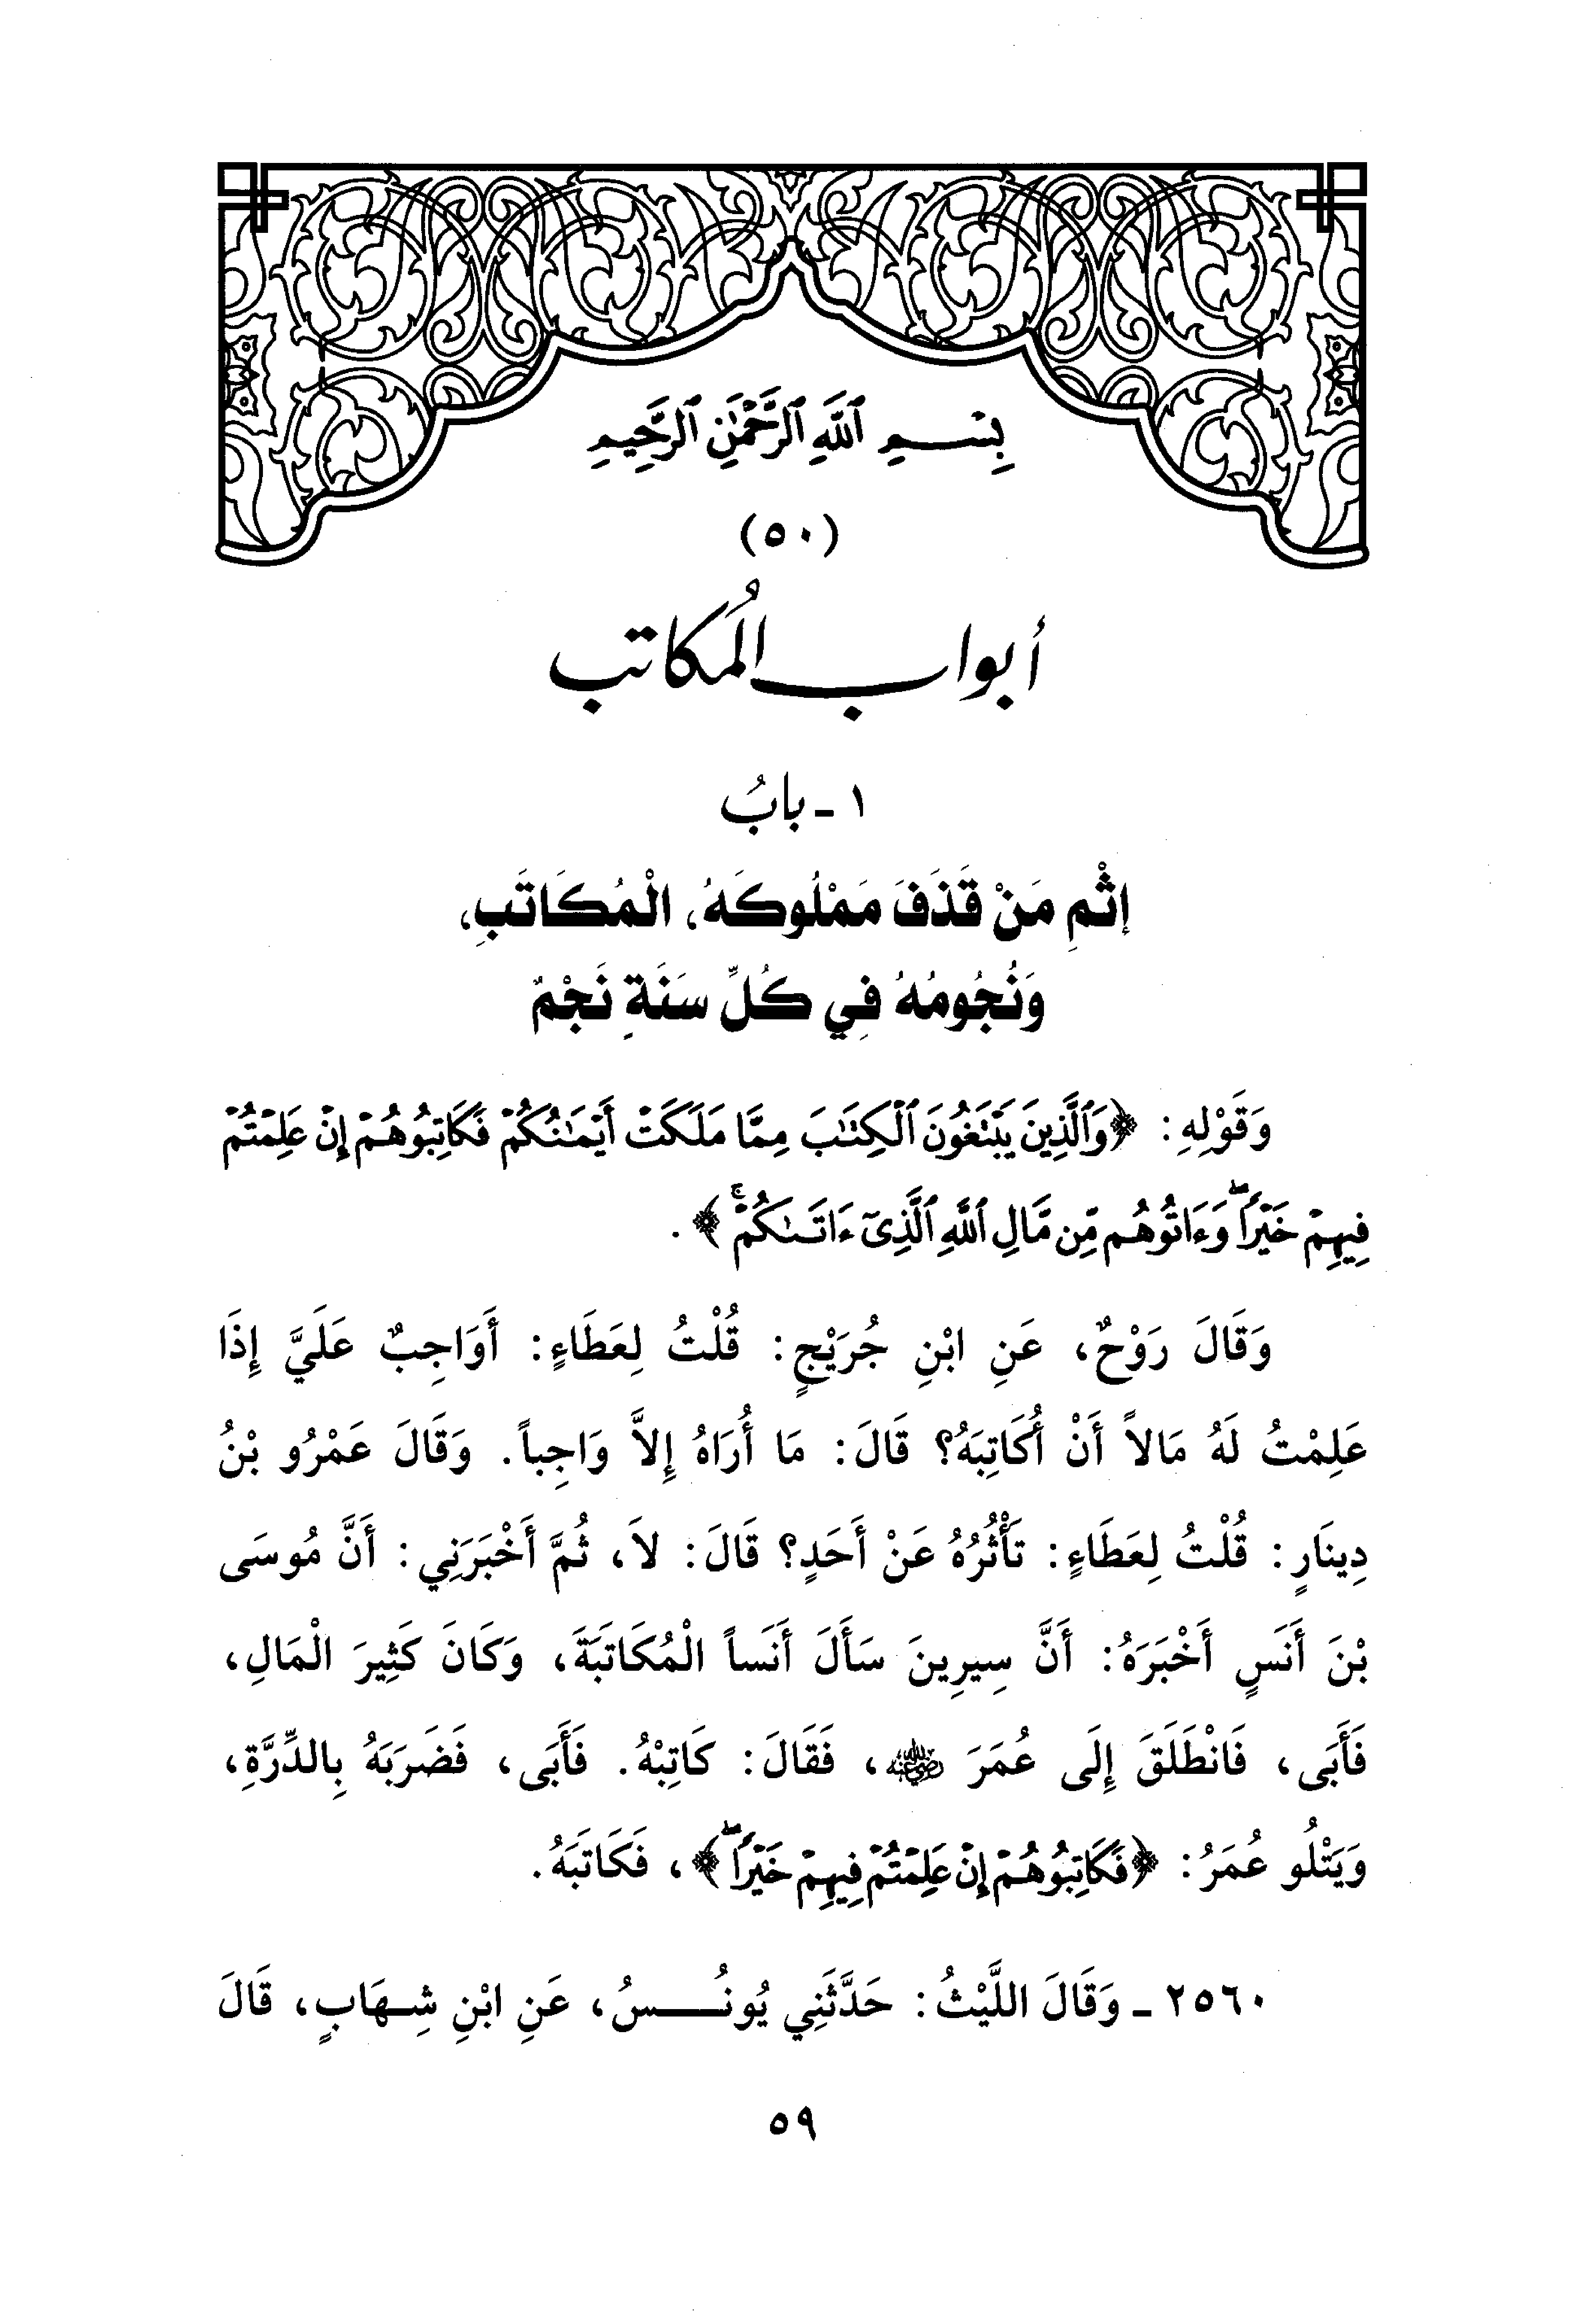 بِسْمِ ٱللَّهِ ٱلرَّحْمَٰنِ ٱلرَّحِيمِ
(٥٠)
أبواب المُكاتب
١ - بابُ
إِثْمِ مَنْ قَذَفَ مَمْلُوكَهُ، الْمُكَاتَبِ،
وَنُجُومُهُ فِي كُلِّ سَنَةٍ نَجْمٌ
وَقَوْلِهِ: ﴿وَٱلَّذِينَ يَبْتَغُونَ ٱلْكِتَٰبَ مِمَّا مَلَكَتْ أَيْمَٰنُكُمْ فَكَاتِبُوهُمْ إِنْ عَلِمْتُمْ
فِيهِمْ خَيْرًاۖ وَءَاتُوهُم مِّن مَّالِ ٱللَّهِ ٱلَّذِىٓ ءَاتَىٰكُمْۚ﴾.
وَقَالَ رَوْحٌ، عَنِ ابْنِ جُرَيْجٍ: قُلْتُ لِعَطَاءٍ: أَوَاجِبٌ عَلَيَّ إِذَا
عَلِمْتُ لَهُ مَالاً أَنْ أُكَاتِبَهُ؟ قَالَ: مَا أُرَاهُ إِلاَّ وَاجِباً. وَقَالَ عَمْرُو بْنُ
دِينَارٍ: قُلْتُ لِعَطَاءٍ: تَأْثُرُهُ عَنْ أَحَدٍ؟ قَالَ: لاَ، ثُمَّ أَخْبَرَنِي: أَنَّ مُوسَى
بْنَ أَنَسٍ أَخْبَرَهُ: أَنَّ سِيرِينَ سَأَلَ أَنَساً الْمُكَاتَبَةَ، وَكَانَ كَثِيرَ الْمَالِ،
فَأَبَى، فَانْطَلَقَ إِلَى عُمَرَ رضي الله عنه، فَقَالَ: كَاتِبْهُ. فَأَبَى، فَضَرَبَهُ بِالدِّرَّةِ،
وَيَتْلُو عُمَرُ: ﴿فَكَاتِبُوهُمْ إِنْ عَلِمْتُمْ فِيهِمْ خَيْرًاۖ﴾، فَكَاتَبَهُ.
٢٥٦٠ - وَقَالَ اللَّيْثُ: حَدَّثَنِي يُونُـــسُ، عَنِ ابْنِ شِـهَابٍ، قَالَ
٥٩